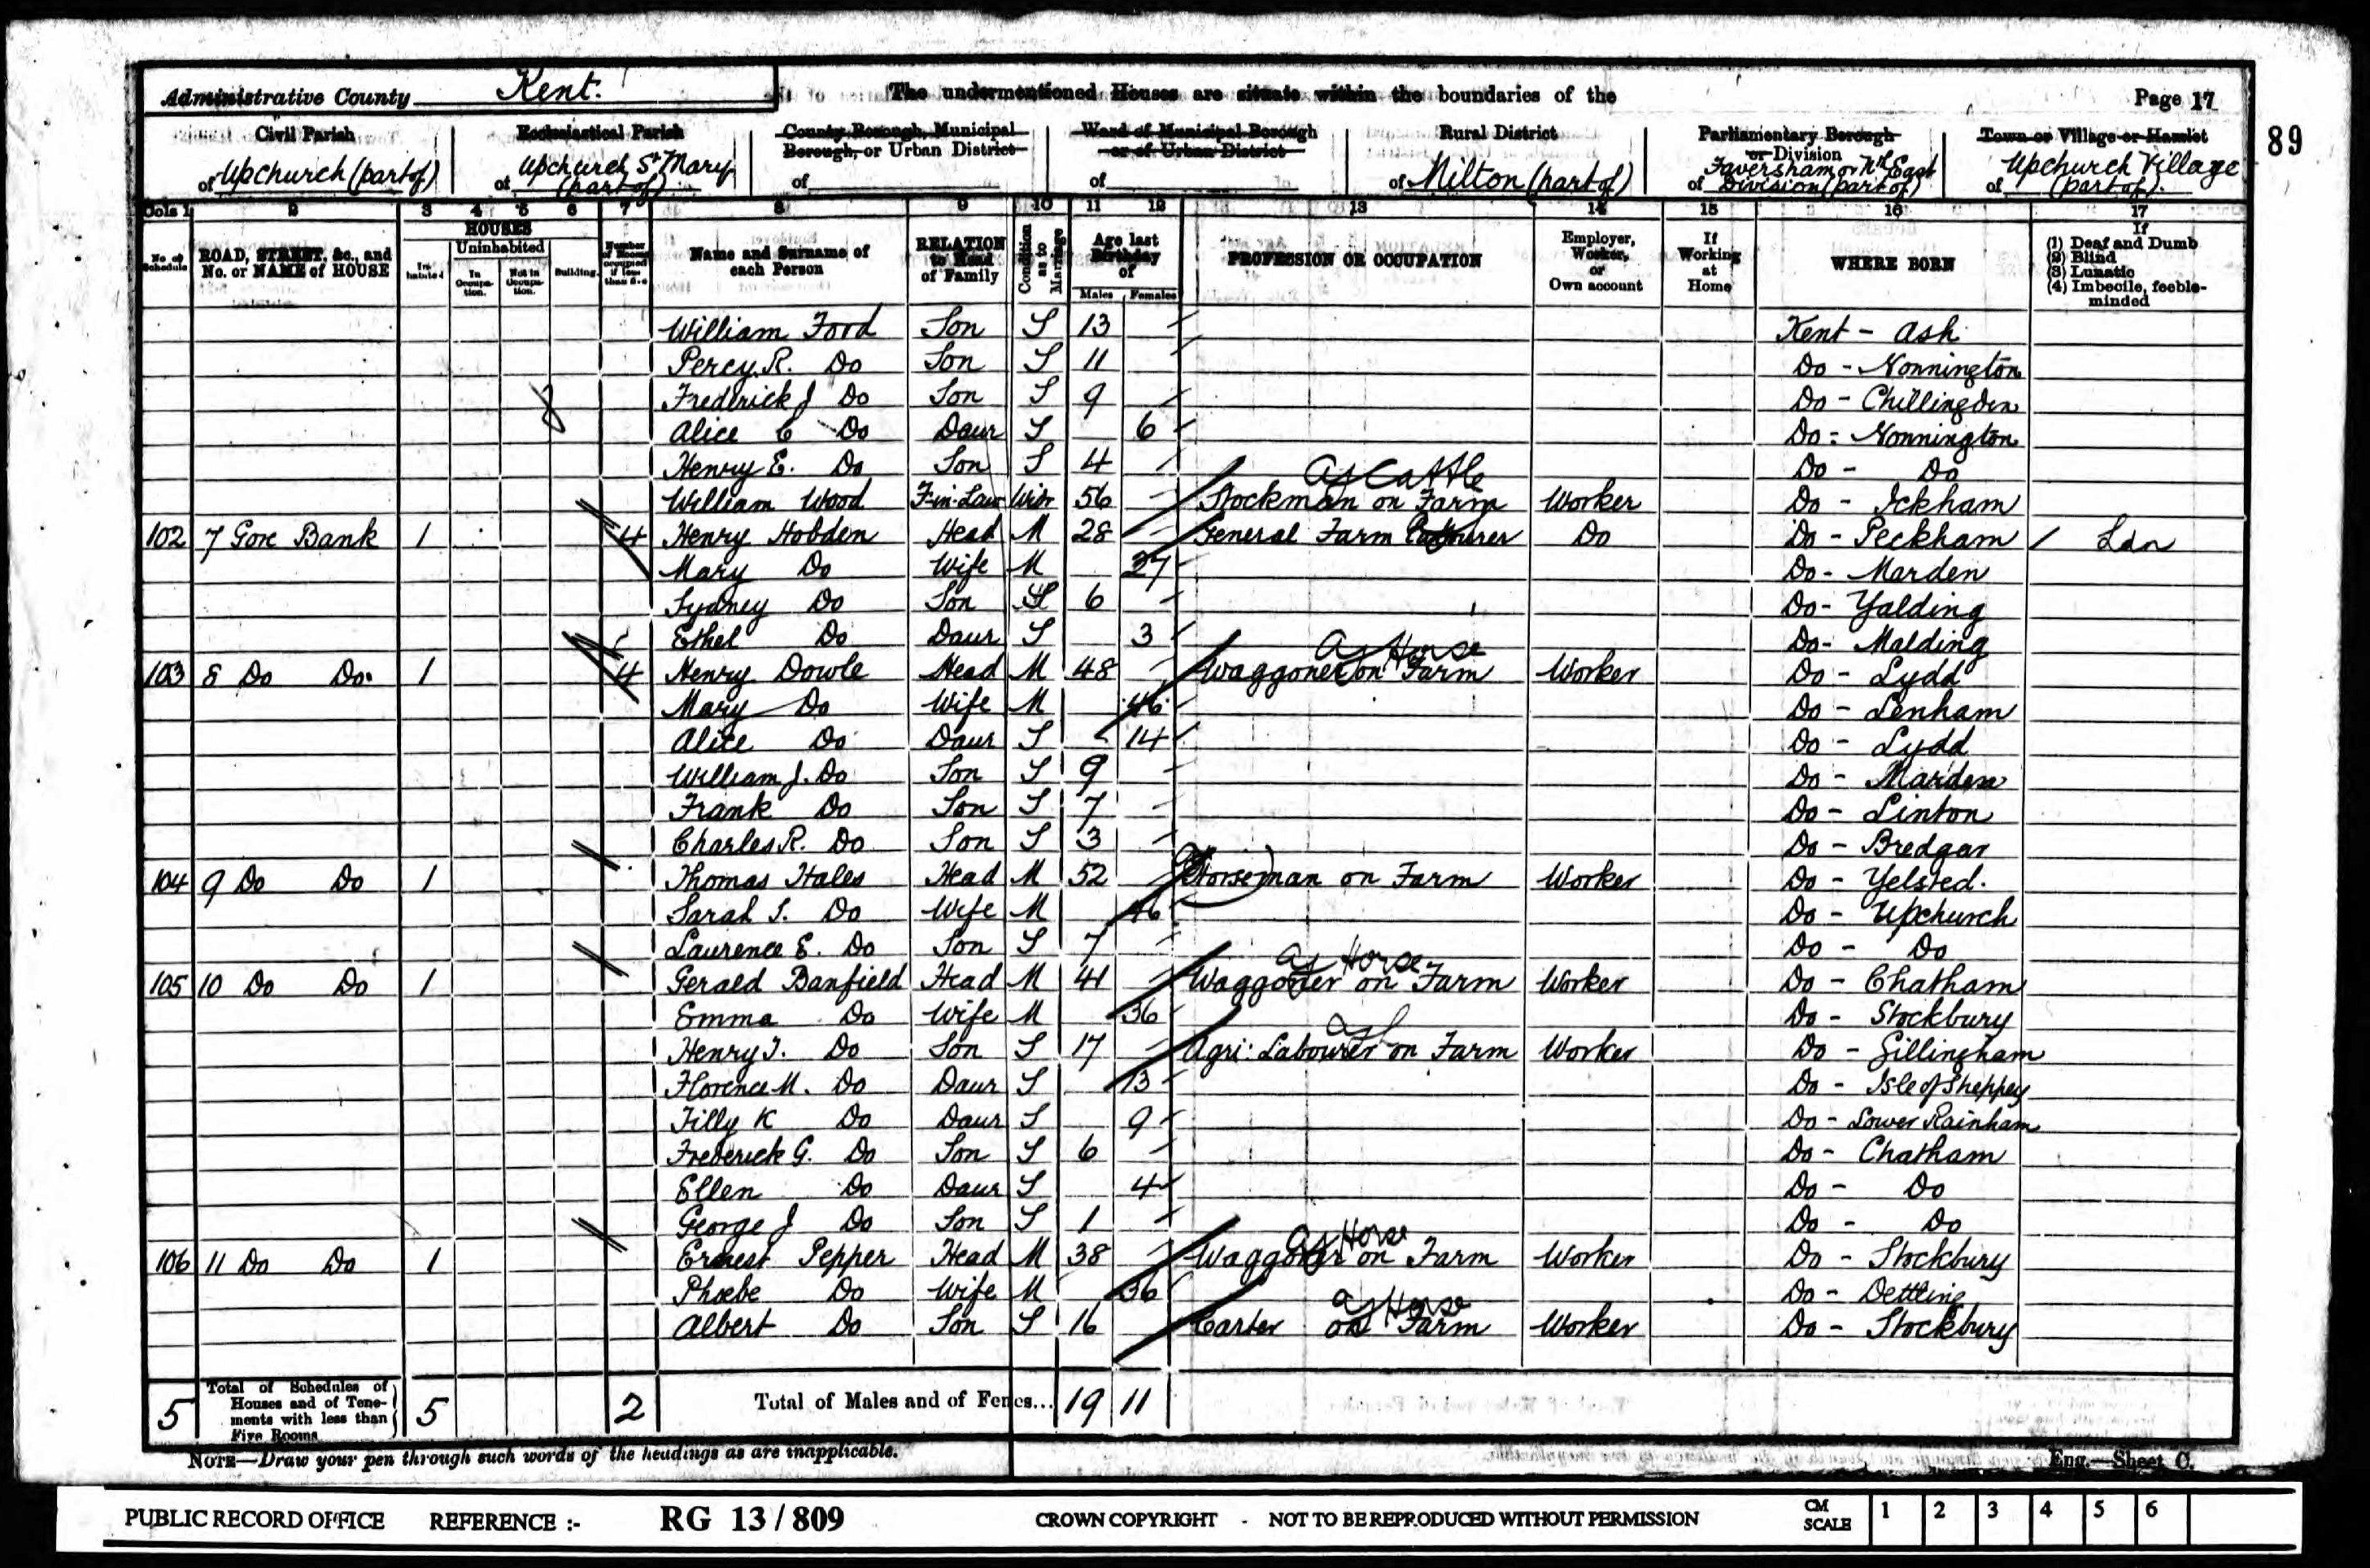 Administrative County Kent.
The undermentioned Houses are situate within the boundaries of the
Page 17
89
Civil Parish
of Upchurch (part of)
Ecclesiastical Parish
of Upchurch St Mary (part of)
County Borough, Municipal Borough, or Urban District
of
Ward of Municipal Borough or of Urban District
of
Rural District
of Milton (part of)
Parliamentary Borough or Division
of Faversham or Nth East Division (part of)
Town or Village or Hamlet
of Upchurch Village (part of).
Cols 1 2 3 4 5 6 7 8 9 10 11 12 13 14 15 16 17
No. of Schedule
ROAD, STREET, &c., and No. or NAME of HOUSE
HOUSES
Inhabited
Uninhabited
In Occupation.
Not in Occupation.
Building.
Number of Rooms occupied if less than five
Name and Surname of each Person
RELATION to Head of Family
Condition as to Marriage
Age last Birthday of
Males Females
PROFESSION OR OCCUPATION
Employer, Worker, or Own account
If Working at Home
WHERE BORN
If
(1) Deaf and Dumb
(2) Blind
(3) Lunatic
(4) Imbecile, feeble-minded
William Ford Son S 13 Kent - Ash
Percy R. Do Son S 11 Do - Nonnington
Frederick J Do Son S 9 Do - Chillingden
Alice C Do Daur S 6 Do - Nonnington
Henry E. Do Son S 4 Do - Do
Ag Cattle
William Wood F-in-Law Widr 56 Stockman on Farm Worker Do - Ickham
102 7 Gore Bank 1 4 Henry Hobden Head M 28 General Farm Labourer Do Do - Peckham / Ldn
Mary Do Wife M 27 Do - Marden
Sydney Do Son S 6 Do - Yalding
Ethel Do Daur S 3 Do - Malding
Ag Horse
103 8 Do Do. 1 4 Henry Dowle Head M 48 Waggoner on Farm Worker Do - Lydd
Mary Do Wife M 46 Do - Lenham
Alice Do Daur S 14 Do - Lydd
William J. Do Son S 9 Do - Marden
Frank Do Son S 7 Do - Linton
Charles R. Do Son S 3 Do - Bredgar
104 9 Do Do 1 Thomas Hales Head M 52 Horseman on Farm Worker Do - Yelsted.
Sarah S. Do Wife M 46 Do - Upchurch
Laurence E. Do Son S 7 Do - Do
Ag Horse
105 10 Do Do 1 Gerald Banfield Head M 41 Waggoner on Farm Worker Do - Chatham
Emma Do Wife M 36 Do - Stockbury
Henry T. Do Son S 17 Agri: Labourer on Farm Worker Do - Gillingham
Florence M. Do Daur S 13 Do - Isle of Sheppey
Tilly K Do Daur S 9 Do - Lower Rainham
Frederick G. Do Son S 6 Do - Chatham
Ellen Do Daur S 4 Do - Do
George J Do Son S 1 Do - Do
Ag Horse
106 11 Do Do 1 Ernest Pepper Head M 38 Waggoner on Farm Worker Do - Stockbury
Phoebe Do Wife M 36 Do - Dettling
Ag Horse
Albert Do Son S 16 Carter on Farm Worker Do - Stockbury
5 Total of Schedules of Houses and of Tenements with less than Five Rooms 5 2 Total of Males and of Females... 19 11
NOTE—Draw your pen through such words of the headings as are inapplicable.
Eng.—Sheet C.
PUBLIC RECORD OFFICE REFERENCE :- RG 13 / 809 CROWN COPYRIGHT - NOT TO BE REPRODUCED WITHOUT PERMISSION CM SCALE 1 2 3 4 5 6